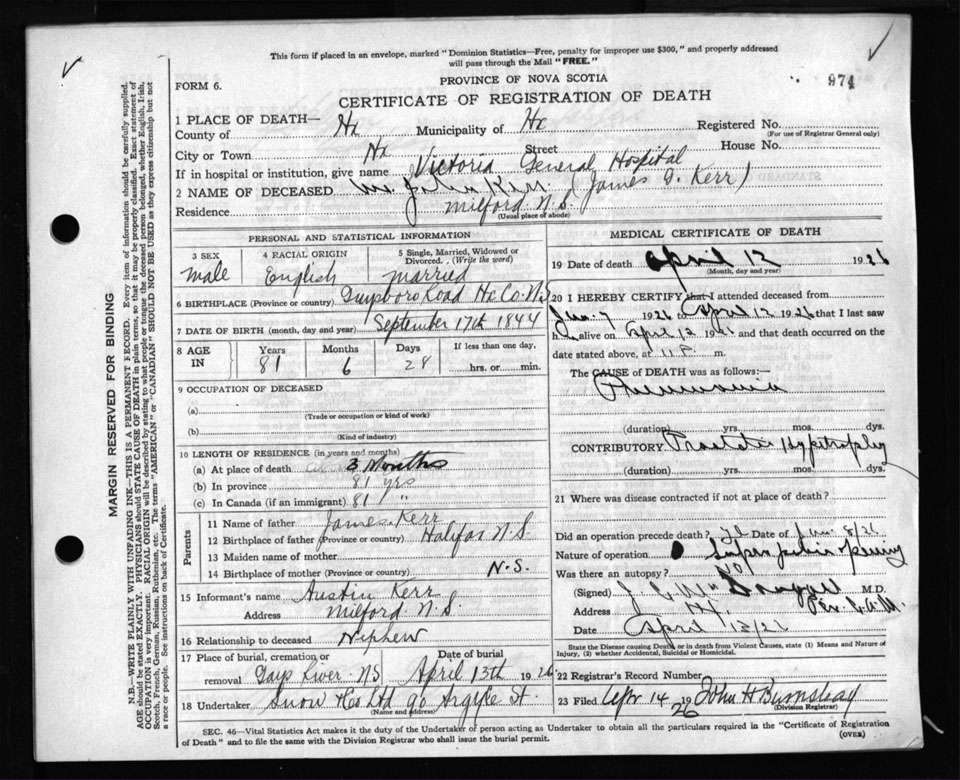 This form if placed in an envelope, marked "Dominion Statistics—Free, penalty for improper use $300," and properly addressed
will pass through the Mail "FREE."
PROVINCE OF NOVA SCOTIA
FORM 6.
974
CERTIFICATE OF REGISTRATION OF DEATH
1 PLACE OF DEATH—
County of Hx Municipality of Hx Registered No.
(For use of Registrar General only)
City or Town Hx Street House No.
If in hospital or institution, give name Victoria General Hospital
2 NAME OF DECEASED Mr John Kerr (James D. Kerr)
Residence Milford N.S.
(Usual place of abode)
PERSONAL AND STATISTICAL INFORMATION
3 SEX 4 RACIAL ORIGIN 5 Single, Married, Widowed or Divorced. (Write the word)
Male English Married
6 BIRTHPLACE (Province or country) Guysboro Road Hx Co. N.S
7 DATE OF BIRTH (month, day and year) September 17th 1844
8 AGE IN Years Months Days If less than one day,
81 6 28 hrs. or min.
9 OCCUPATION OF DECEASED
(a)
(Trade or occupation or kind of work)
(b)
(Kind of industry)
10 LENGTH OF RESIDENCE (in years and months)
(a) At place of death 3 Months
(b) In province 81 yrs
(c) In Canada (if an immigrant) 81 "
Parents
11 Name of father James Kerr
12 Birthplace of father (Province or country) Halifax N.S.
13 Maiden name of mother
14 Birthplace of mother (Province or country) N.S.
15 Informant's name Austin Kerr
Address Milford N.S.
16 Relationship to deceased Nephew
17 Place of burial, cremation or removal Gays River NS
Date of burial April 13th 1926
18 Undertaker Snow & Co Ltd 90 Argyle St.
(Name and address)
MEDICAL CERTIFICATE OF DEATH
19 Date of death April 12 1926
(Month, day and year)
20 I HEREBY CERTIFY that I attended deceased from
Jan. 7 1926 to April 12 1926 that I last saw
h alive on April 12 1926 and that death occurred on the
date stated above, at 11 P. m.
The CAUSE of DEATH was as follows:—
Pneumonia
(duration) yrs. mos. dys.
CONTRIBUTORY Prostatic Hypertrophy
(duration) yrs. mos. dys.
21 Where was disease contracted if not at place of death?
Did an operation precede death? Date of Jan. 8/26
Nature of operation Supra pubic
Was there an autopsy? No
(Signed) M.D.
Address Hx.
Date April 13/26
State the Disease causing Death, or in death from Violent Causes, state (1) Means and Nature of
Injury, (2) whether Accidental, Suicidal or Homicidal.
22 Registrar's Record Number
23 Filed Apr 14 1926 John H
(Division Registrar)
SEC. 46—Vital Statistics Act makes it the duty of the Undertaker or person acting as Undertaker to obtain all the particulars required in the "Certificate of Registration
of Death" and to file the same with the Division Registrar who shall issue the burial permit.
(OVER)
MARGIN RESERVED FOR BINDING
N.B.—WRITE PLAINLY WITH UNFADING INK—THIS IS A PERMANENT RECORD. Every item of information should be carefully supplied.
AGE should be stated EXACTLY. PHYSICIANS should STATE CAUSE OF DEATH in plain terms, so that it may be properly classified. Exact statement of
OCCUPATION is very important. RACIAL ORIGIN will be described by stating to what people or tongue the deceased person belonged, whether English, Irish,
Scotch, French, German, Russian, Ruthenian, etc. The terms "AMERICAN" or "CANADIAN" SHOULD NOT BE USED as they express citizenship but not
a race or people. See instructions on back of Certificate.